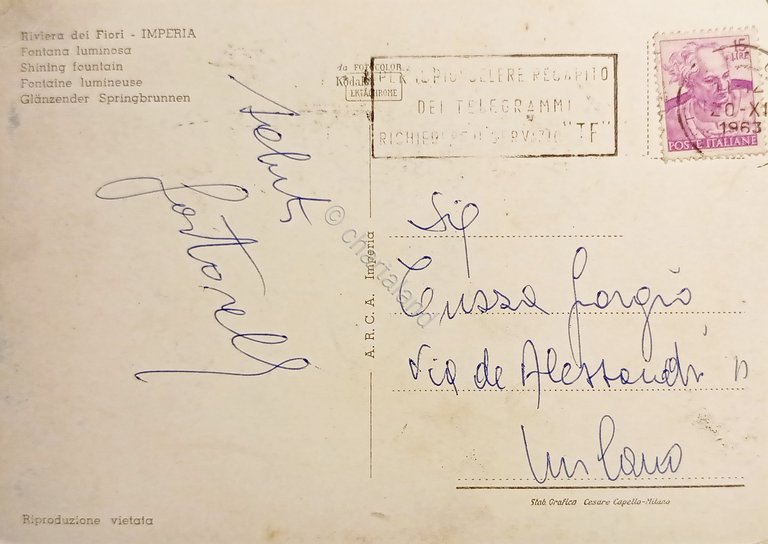 Riviera dei Fiori - IMPERIA
Fontana luminosa
Shining fountain
Fontaine lumineuse
Glänzender Springbrunnen
da FOTOCOLOR
Kodak
EKTACHROME
PER IL PIU' CELERE RECAPITO
DEI TELEGRAMMI
RICHIEDERE IL SERVIZIO "TF"
15
LIRE
20-XI
1963
POSTE ITALIANE
Saluti
© chartaland
A. R. C. A. Imperia
Sig
Giorgio
Via de Alessandri
Milano
Stab. Grafico Cesare Capello-Milano
Riproduzione vietata